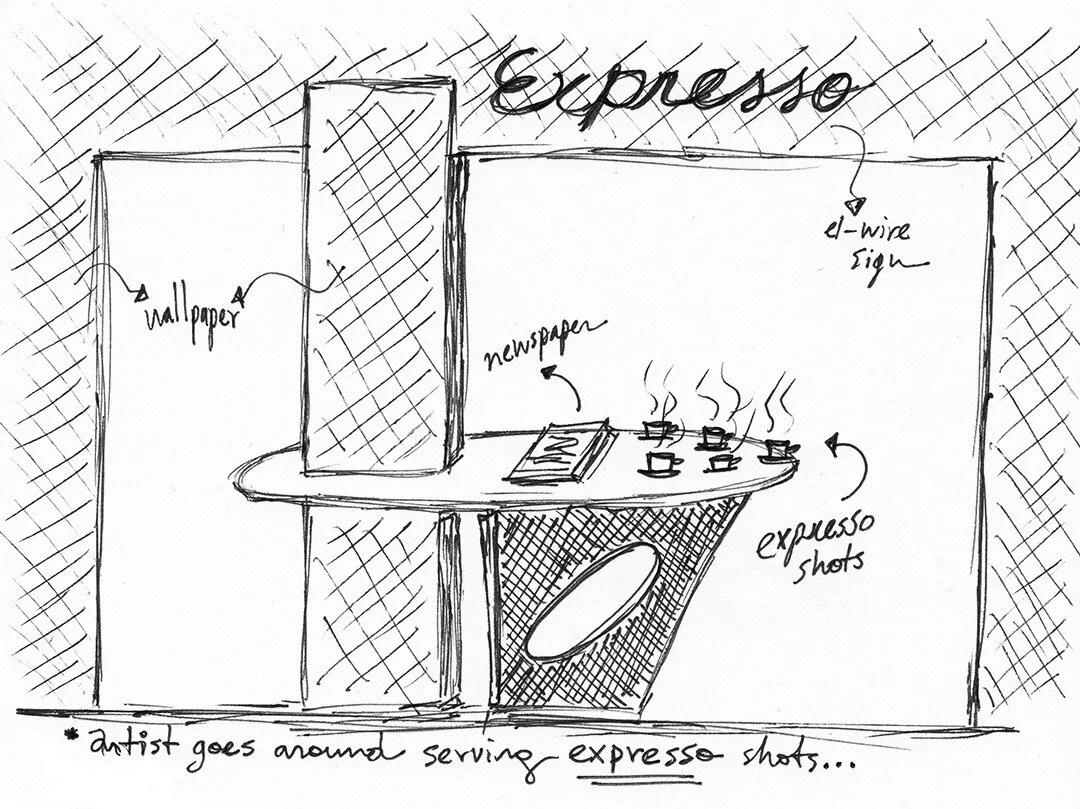 Expresso
el-wire
sign
wallpaper
newspaper
expresso
shots
* artist goes around serving expresso shots...